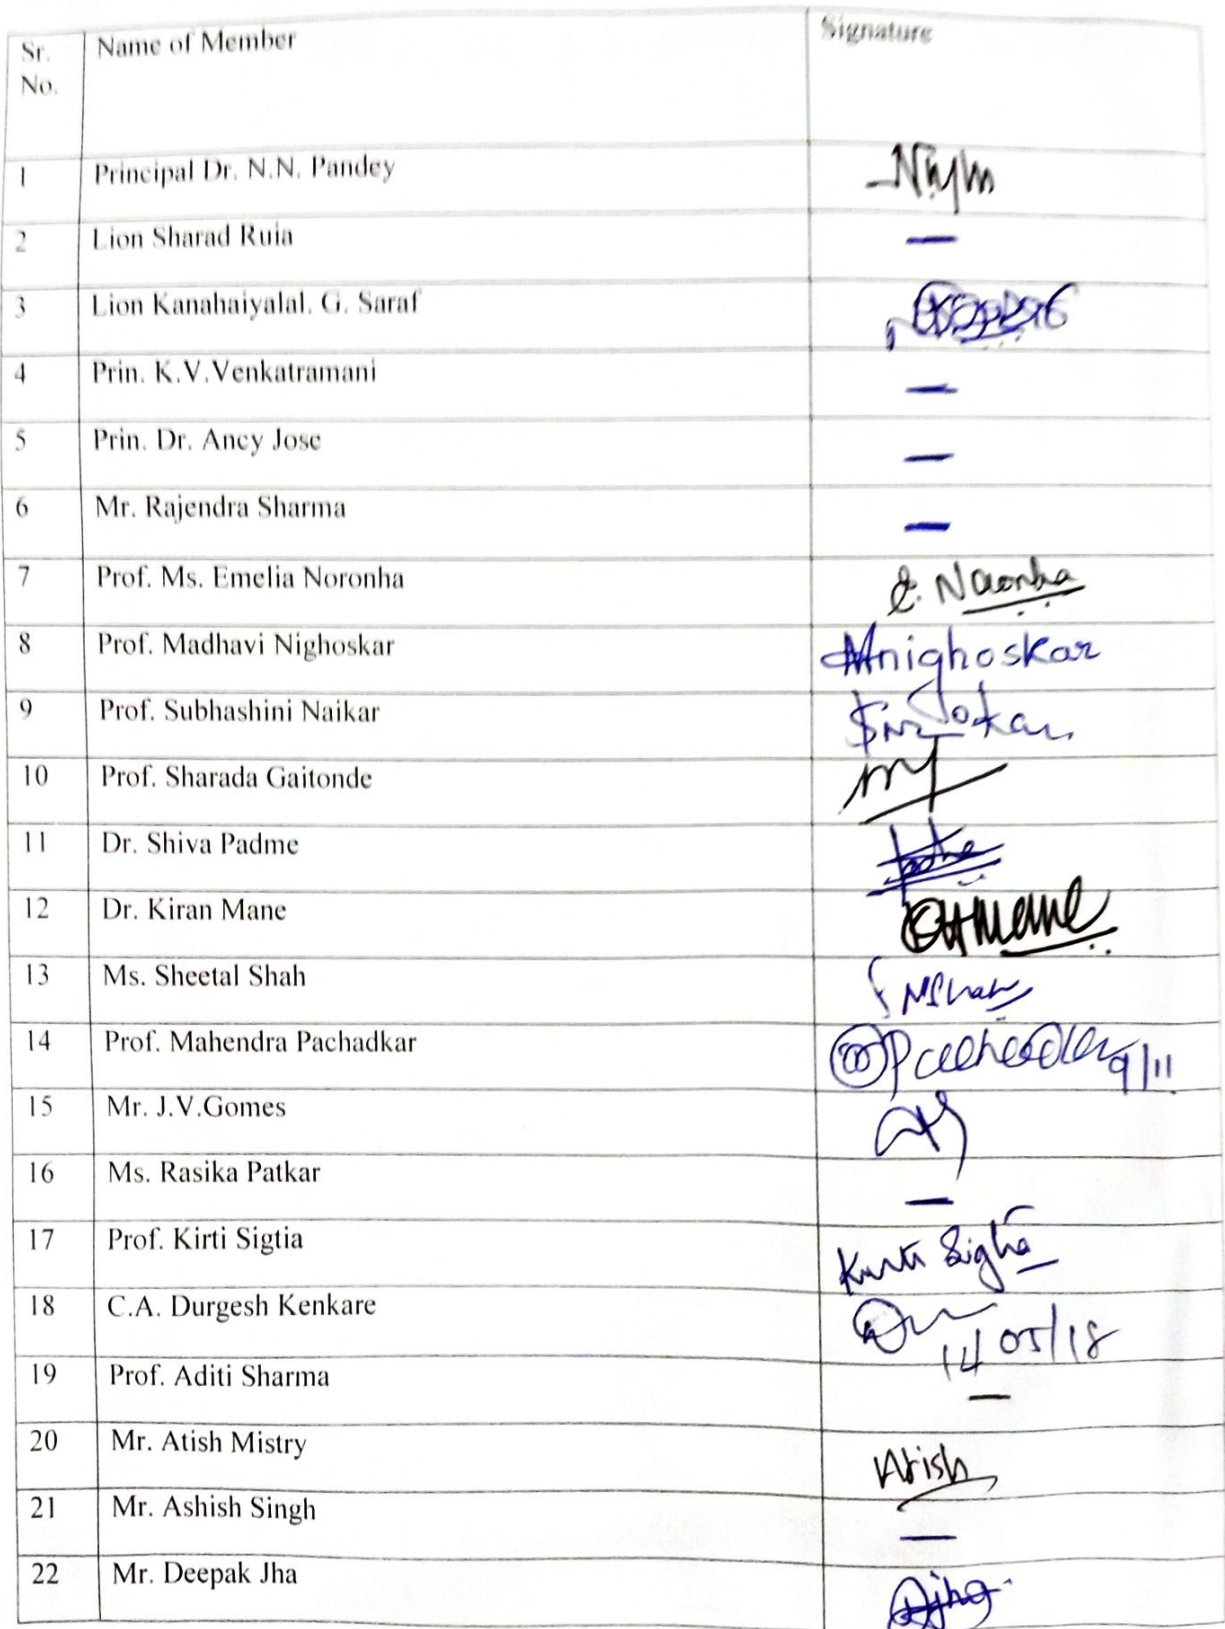 Sr. No. Name of Member Signature
1 Principal Dr. N.N. Pandey
2 Lion Sharad Ruia —
3 Lion Kanahaiyalal. G. Saraf
4 Prin. K.V.Venkatramani —
5 Prin. Dr. Ancy Jose —
6 Mr. Rajendra Sharma —
7 Prof. Ms. Emelia Noronha E. Noronha
8 Prof. Madhavi Nighoskar Mnighoskar
9 Prof. Subhashini Naikar
10 Prof. Sharada Gaitonde
11 Dr. Shiva Padme
12 Dr. Kiran Mane
13 Ms. Sheetal Shah
14 Prof. Mahendra Pachadkar 9/11
15 Mr. J.V.Gomes
16 Ms. Rasika Patkar —
17 Prof. Kirti Sigtia Kirti Sigtia
18 C.A. Durgesh Kenkare 14/05/18
19 Prof. Aditi Sharma —
20 Mr. Atish Mistry Atish
21 Mr. Ashish Singh —
22 Mr. Deepak Jha Djha